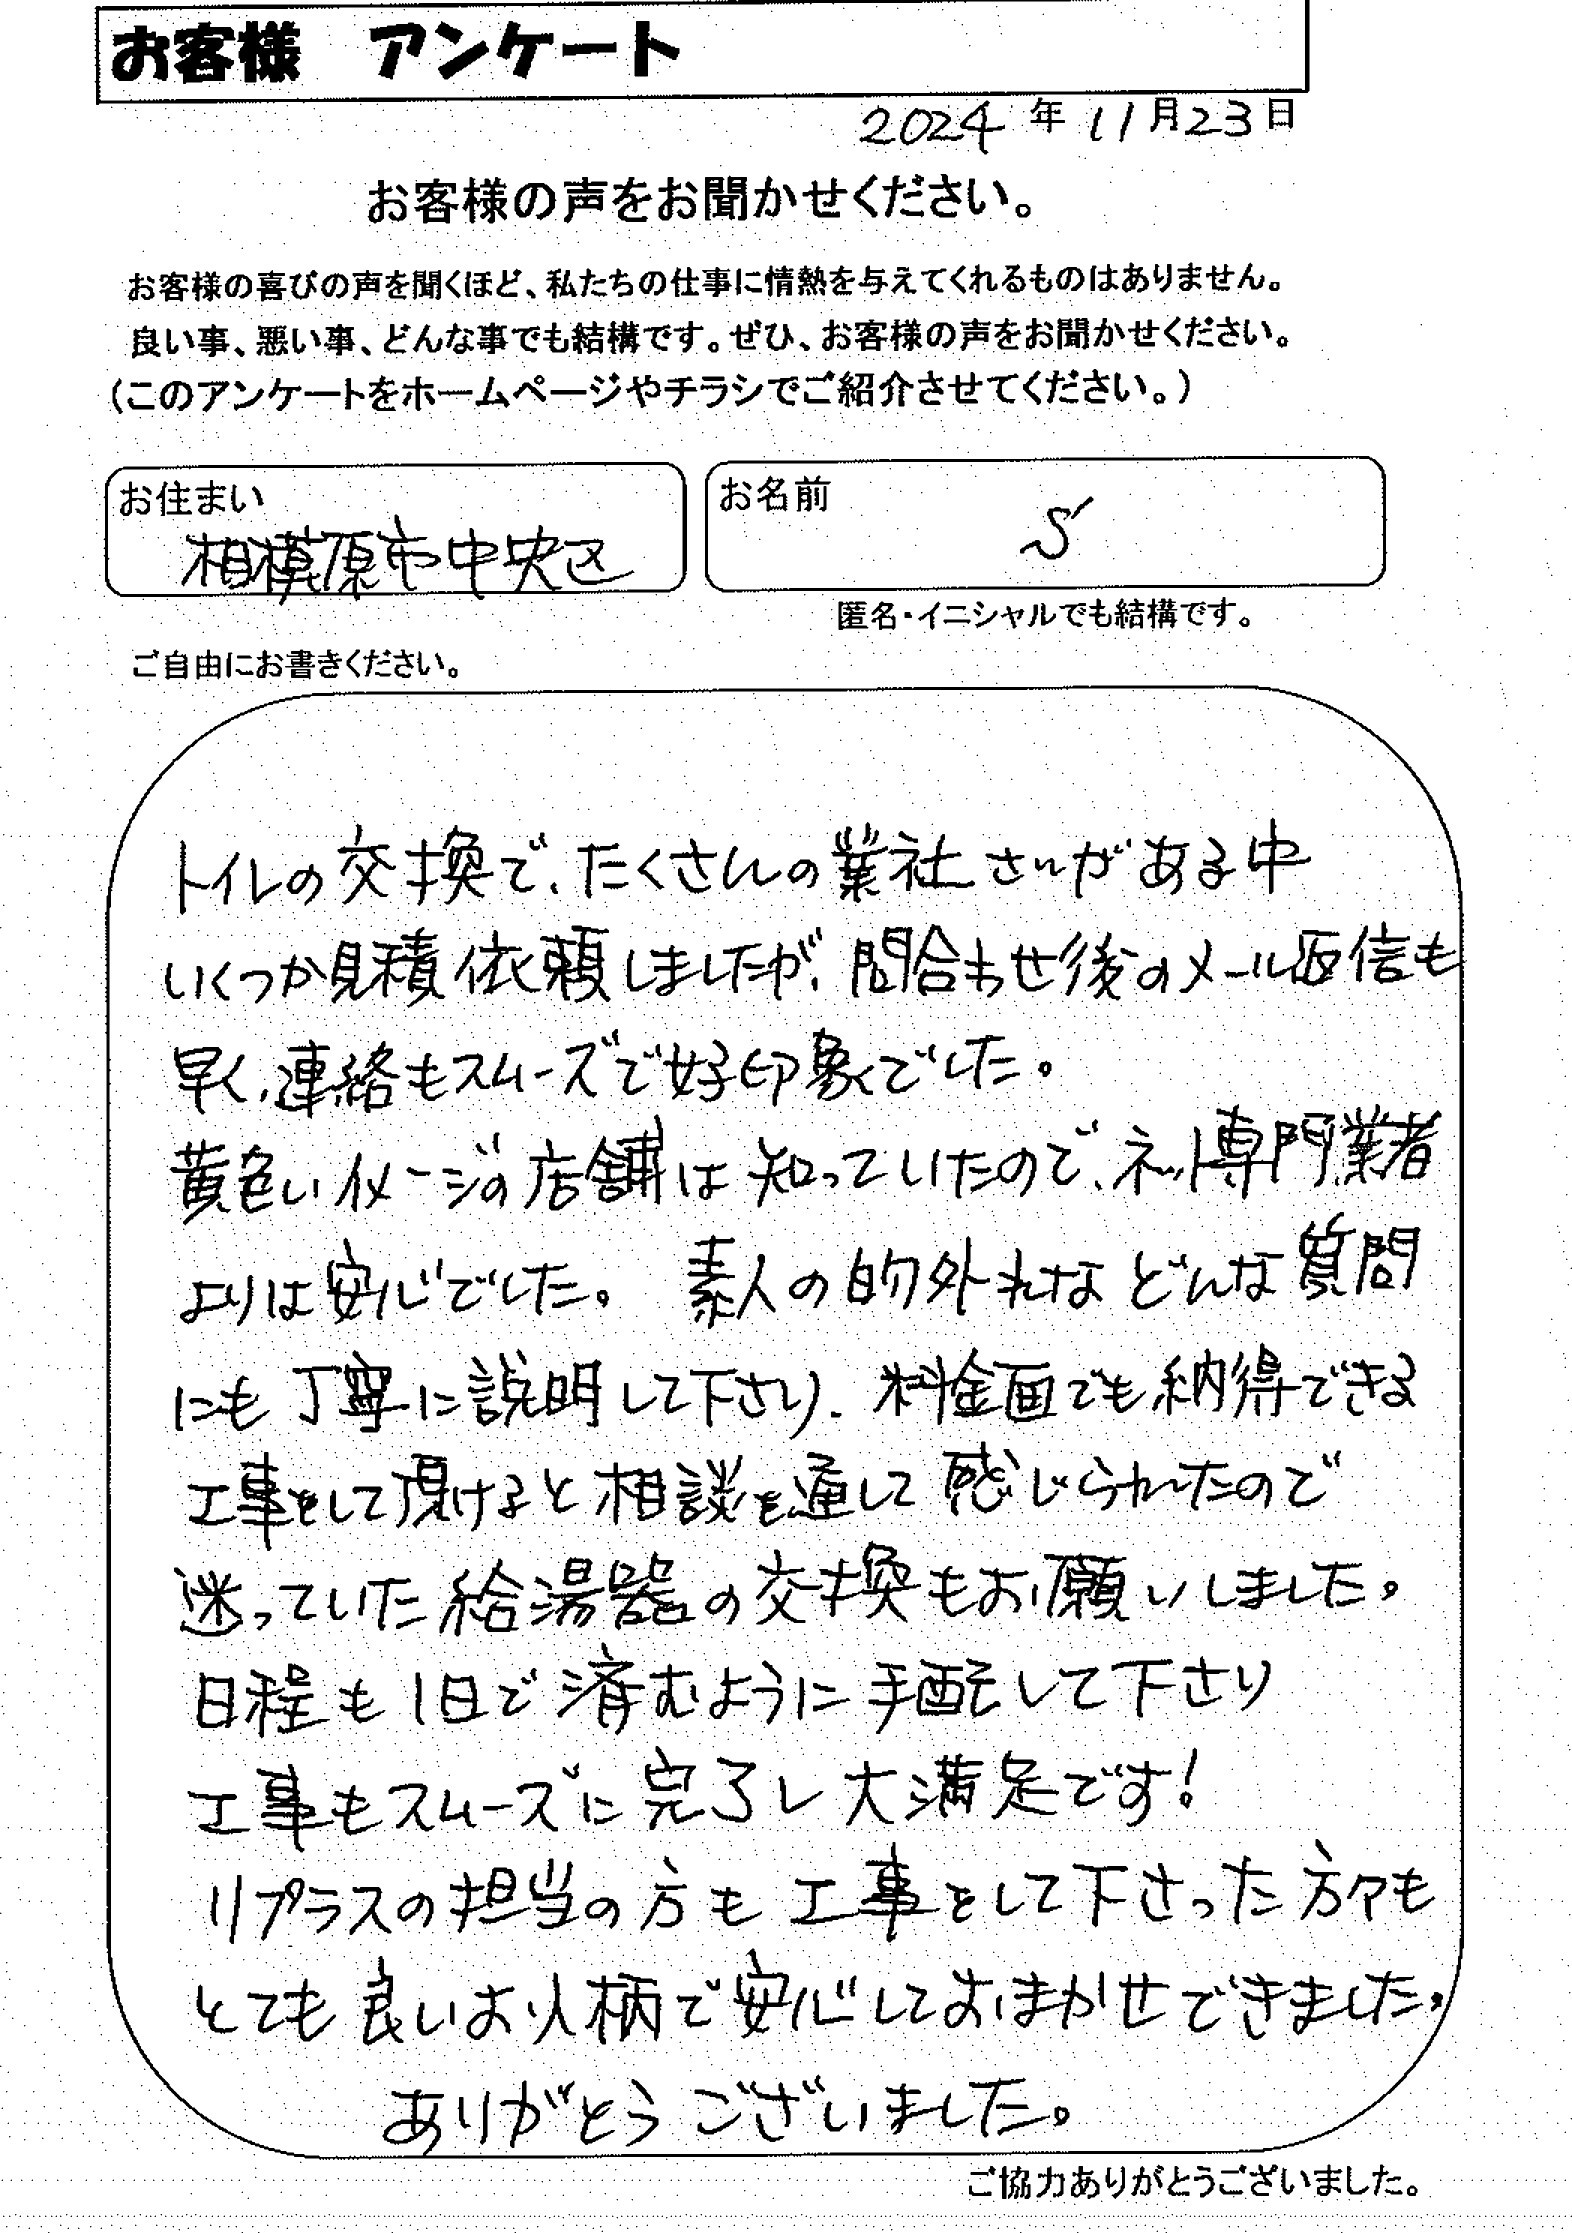 お客様 アンケート
2024 年 11月23日
お客様の声をお聞かせください。
お客様の喜びの声を聞くほど、私たちの仕事に情熱を与えてくれるものはありません。
良い事、悪い事、どんな事でも結構です。ぜひ、お客様の声をお聞かせください。
(このアンケートをホームページやチラシでご紹介させてください。)
お住まい
相模原市中央区
お名前
S
匿名・イニシャルでも結構です。
ご自由にお書きください。
トイレの交換で、たくさんの業社さんがある中
いくつか見積依頼しましたが、問合わせ後のメール返信も
早く、連絡もスムーズで好印象でした。
黄色いイメージの店舗は知っていたので、ネット専門業者
よりは安心でした。 素人の的外れなどんな質問
にも丁寧に説明して下さり、料金面でも納得できる
工事をして頂けると相談を通して感じられたので
迷っていた給湯器の交換もお願いしました。
日程も1日で済むように手配して下さり
工事もスムーズに完了し大満足です!
リプラスの担当の方も工事をして下さった方々も
とても良いお人柄で安心しておまかせできました。
ありがとうございました。
ご協力ありがとうございました。